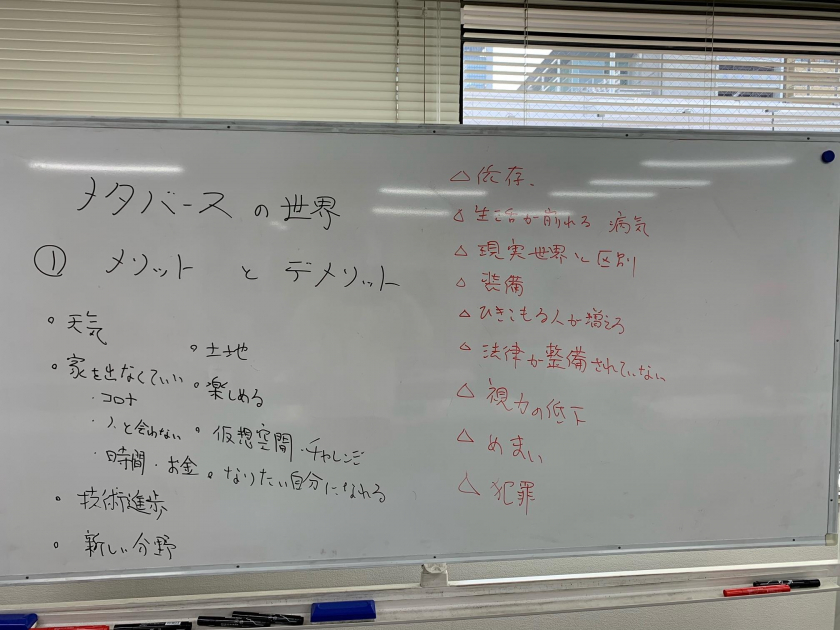 メタバースの世界
① メリットとデメリット
○ 天気
○ 家を出なくていい
・コロナ
・人と会わない
・時間・お金
○ 技術進歩
○ 新しい分野
○ 土地
○ 楽しめる
○ 仮想空間・チャレンジ
○ なりたい自分になれる
△ 依存、
△ 生活が崩れる 病気
△ 現実世界と区別
△ 装備
△ ひきこもる人が増える
△ 法律が整備されていない
△ 視力の低下
△ めまい
△ 犯罪